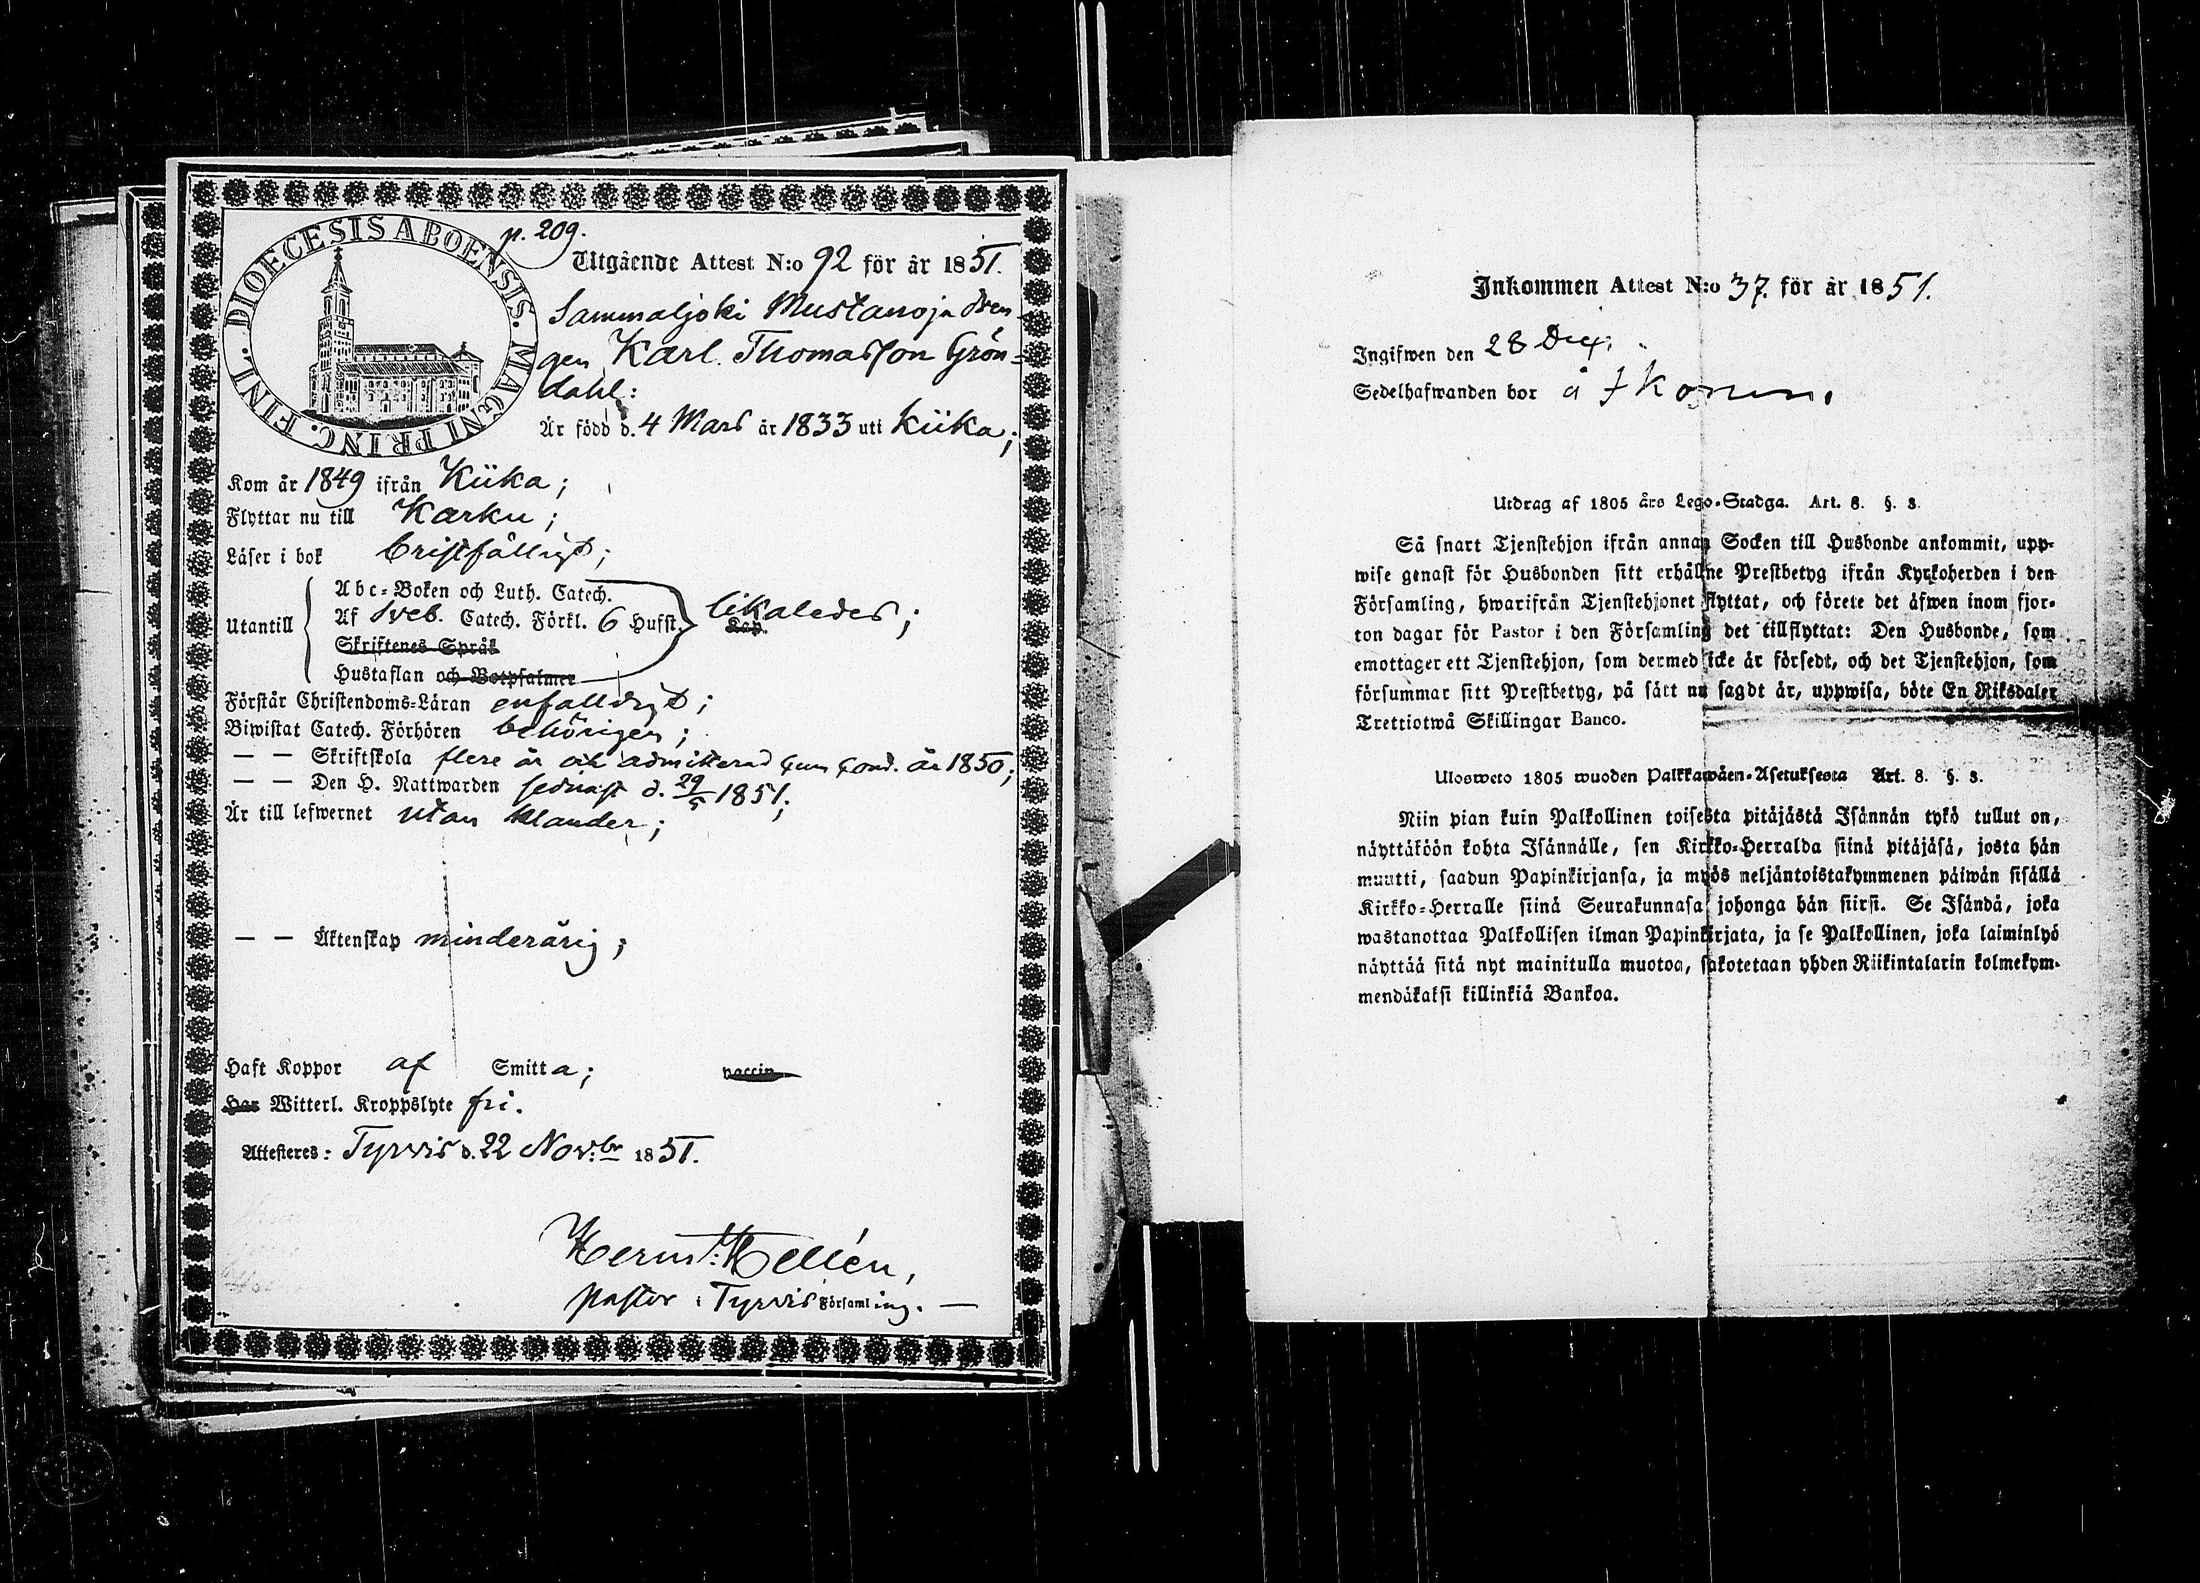 DIOECESIS ABOENSIS. MAGNI PRINC. FINL.
p. 209.
Utgående Attest N:o 92 för år 1851.
Sammaljoki Mustanoja dren-
gen Karl Thomasson Grön-
dahl:
Är född d. 4 Mars år 1833 uti Kiika;
Kom år 1849 ifrån Kiika;
Flyttar nu till Karku;
Läser i bok bristfälligt;
Utantill
Abc-Boken och Luth. Catech.
Af Sveb. Catech. Förkl. 6 Hufst. Kap. likaledes;
Skriftenes Språk
Hustaflan och Botpsalmer
Förstår Christendoms-Läran enfalldigt;
Biwistat Catech. Förhören behörigen;
— — Skriftskola flere år och admitterad cum cond. år 1850;
— — Den H. Nattwarden sednast d. 29/5 1851;
Är till lefwernet utan klander;
— — Äktenskap minderårig;
Haft Koppor af Smitta; vaccin
Har Witterl. Kroppslyte fri.
Attesteres: Tyrvis d. 22 Nov:br 1851.
Hellén,
pastor i Tyrvis Församling. —
Inkommen Attest N:o 37. för år 1851.
Ingifwen den 28 Dec:
Sedelhafwanden bor å
Utdrag af 1805 års Lego-Stadga. Art. 8. §. 3.
Så snart Tjenstehjon ifrån annan Socken till Husbonde ankommit, upp-
wise genast för Husbonden sitt erhållne Prestbetyg ifrån Kyrkoherden i den
Församling, hwarifrån Tjenstehjonet flyttat, och förete det äfwen inom fjor-
ton dagar för Pastor i den Församling det tillflyttat: Den Husbonde, som
emottager ett Tjenstehjon, som dermed icke är försedt, och det Tjenstehjon, som
försummar sitt Prestbetyg, på sätt nu sagdt är, uppwisa, böte En Riksdaler
Trettiotwå Skillingar Banco.
Ulosweto 1805 wuoden Palkkawäen-Asetuksesta Art. 8. §. 3.
Niin pian kuin Palkollinen toisesta pitäjästä Isännän tykö tullut on,
näyttäköön kohta Isännälle, sen Kirkko-Herralda siinä pitäjäsä, josta hän
muutti, saadun Papinkirjansa, ja myös neljäntoistakymmenen päiwän sisällä
Kirkko-Herralle siinä Seurakunnasa johonga hän siirsi. Se Isändä, joka
wastanottaa Palkollisen ilman Papinkirjata, ja se Palkollinen, joka laiminlyö
näyttää sitä nyt mainitulla muotoa, sakotetaan yhden Riikintalarin kolmekym-
mendäkaksi killinkiä Bankoa.